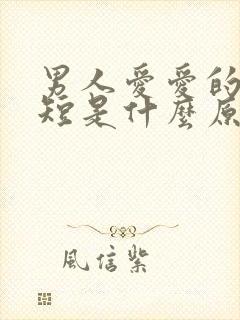 男人愛愛的
短是什麼原
風信紫